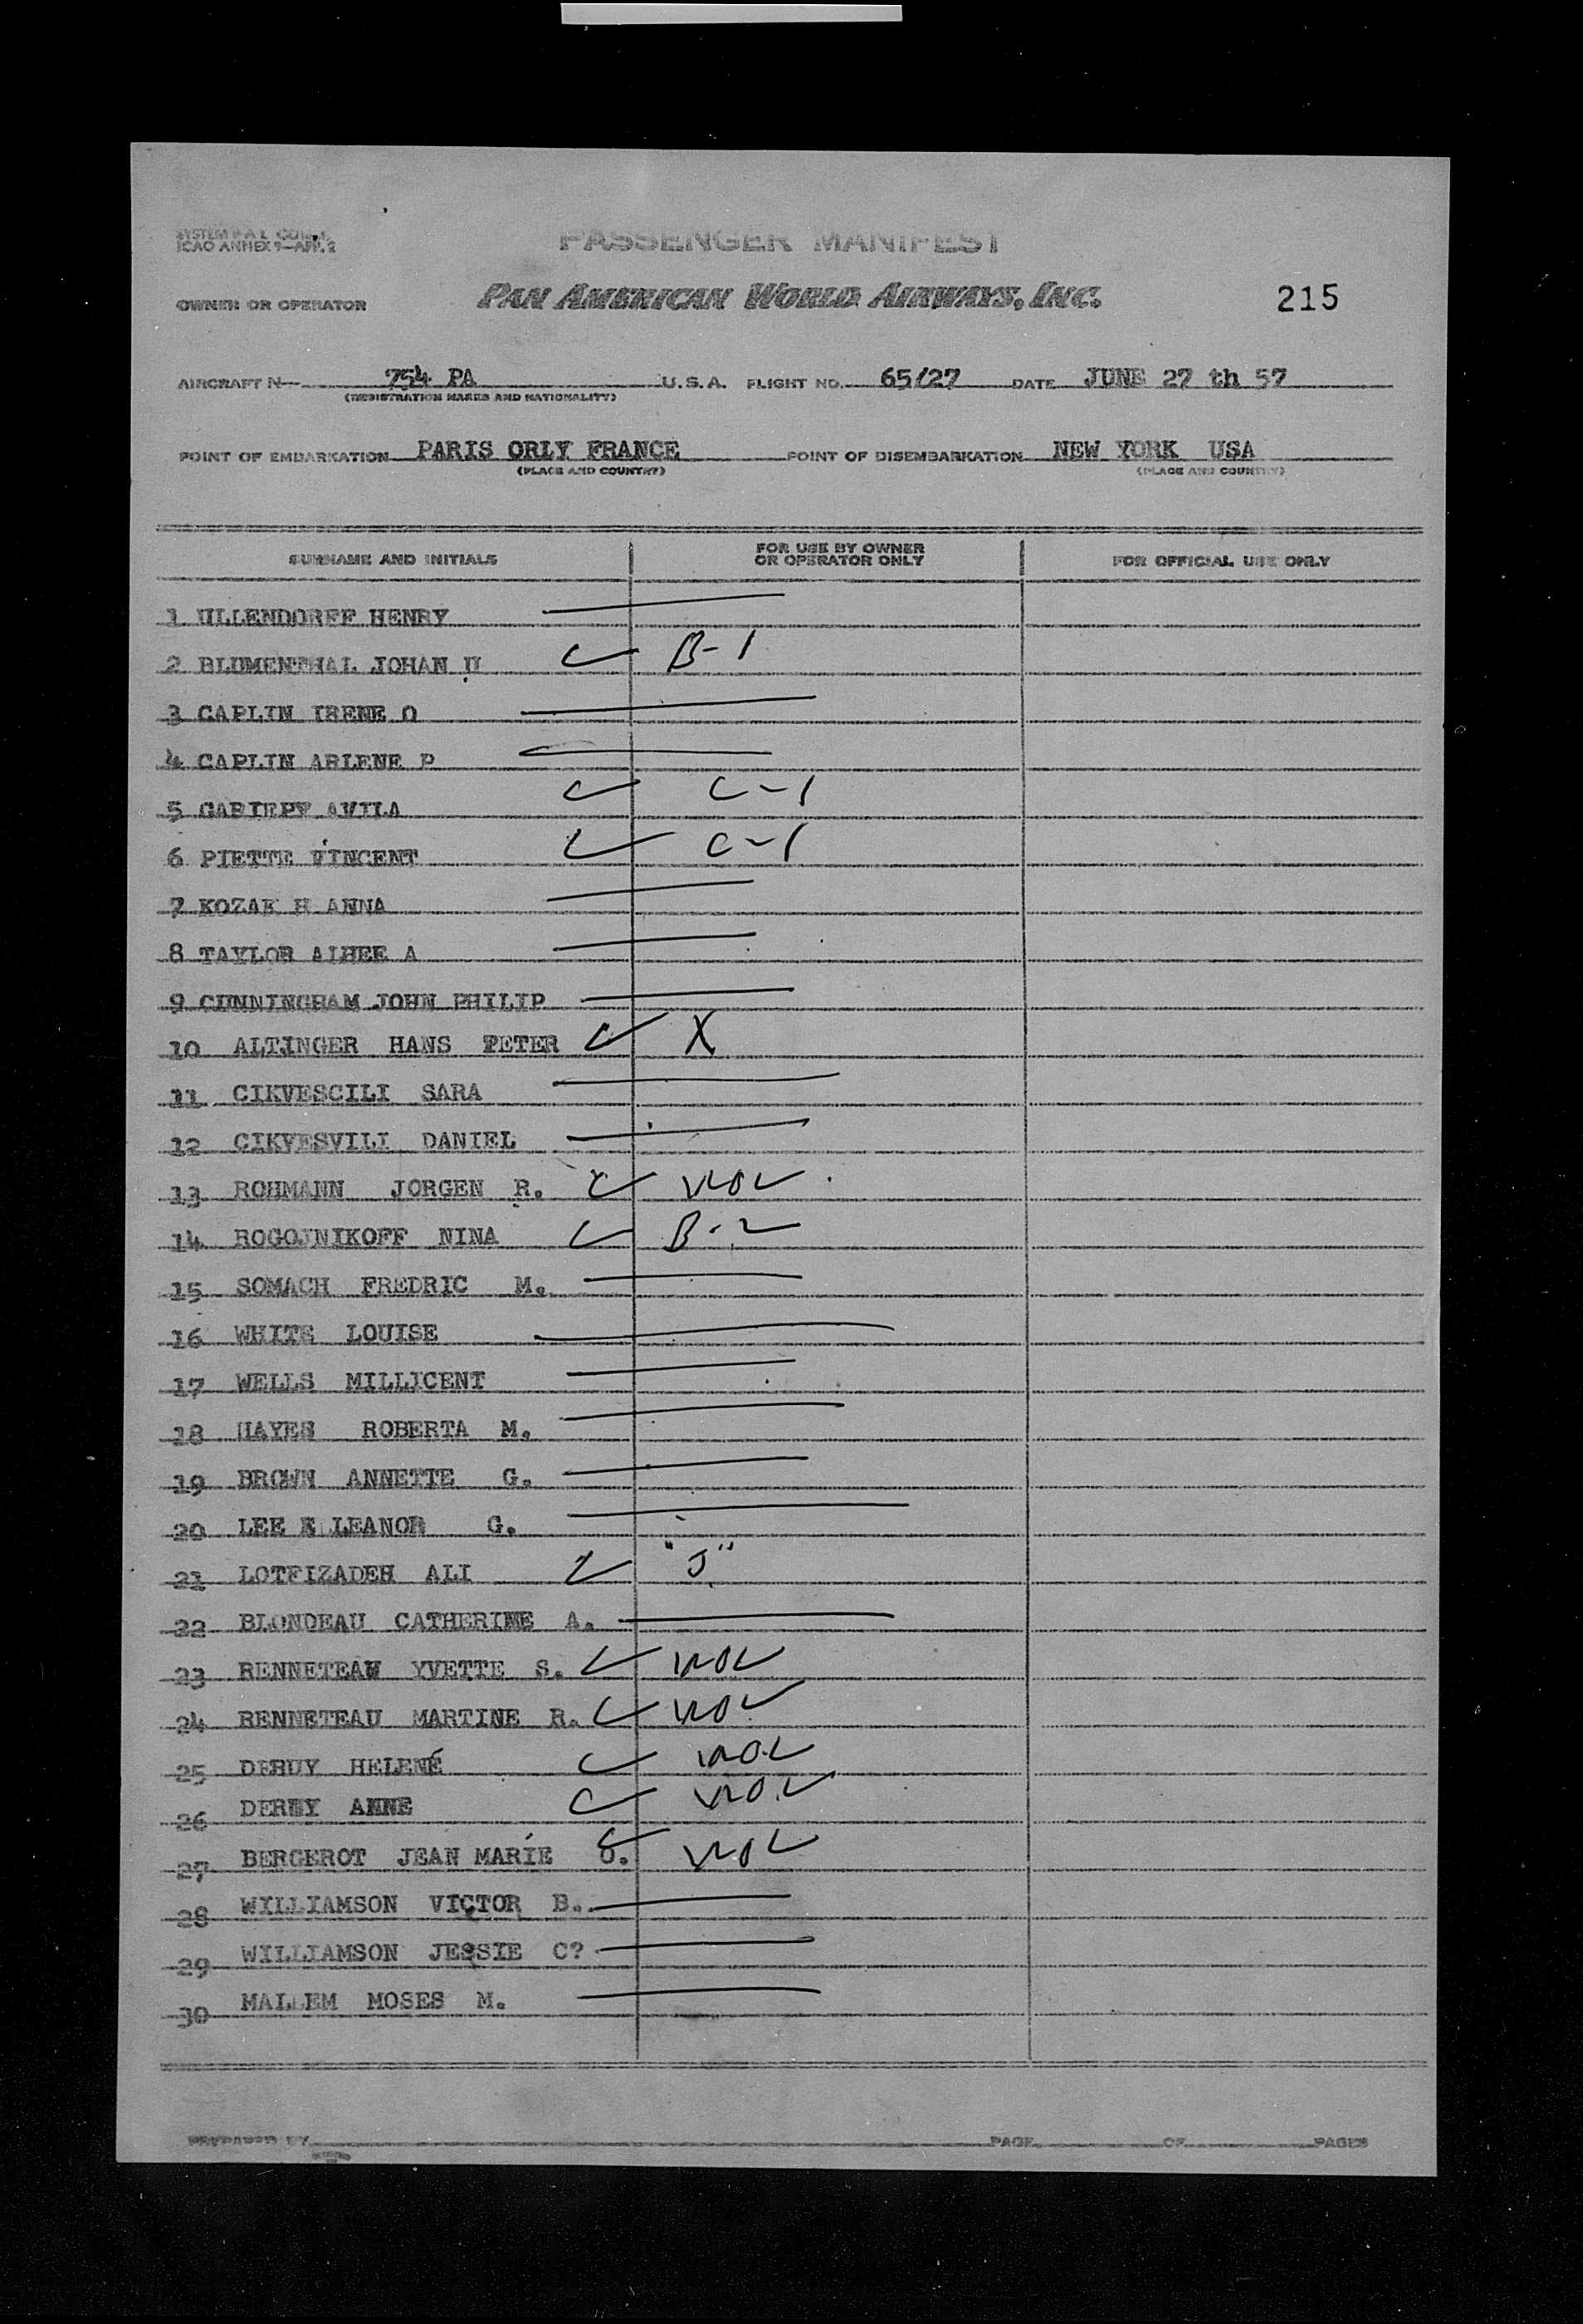 SYSTEM P.A.L.
ICAO ANNEX 9—APP. 2
PASSENGER MANIFEST
OWNER OR OPERATOR PAN AMERICAN WORLD AIRWAYS, INC. 215
AIRCRAFT N— 754 PA U.S.A. FLIGHT NO. 65/27 DATE JUNE 27 th 57
(REGISTRATION MARKS AND NATIONALITY)
POINT OF EMBARKATION PARIS ORLY FRANCE POINT OF DISEMBARKATION NEW YORK USA
(PLACE AND COUNTRY) (PLACE AND COUNTRY)
SURNAME AND INITIALS FOR USE BY OWNER OR OPERATOR ONLY FOR OFFICIAL USE ONLY
1 ULLENDORFF HENRY
2 BLUMENTHAL JOHAN U B-1
3 CAPLIN IRENE O
4 CAPLIN ARLENE P
5 GARIEPY AVILA C-1
6 PIETTE VINCENT C-1
7 KOZAK H ANNA
8 TAYLOR A
9 CUNNINGHAM JOHN PHILIP
10 ALTINGER HANS PETER X
11 CIKVESCILI SARA
12 CIKVESVILI DANIEL
13 ROHMANN JORGEN R.
14 ROGOJNIKOFF NINA B-2
15 SOMACH FREDRIC M.
16 WHITE LOUISE
17 WELLS MILLICENT
18 HAYES ROBERTA M.
19 BROWN ANNETTE G.
20 LEE ELEANOR G.
21 LOTFIZADEH ALI "J"
22 BLONDEAU CATHERINE A.
23 RENNETEAU YVETTE S.
24 RENNETEAU MARTINE R.
25 DERUY HELENE
26 DERUY ANNE
27 BERGEROT JEAN MARIE
28 WILLIAMSON VICTOR B.
29 WILLIAMSON JESSIE C?
30 MALLEM MOSES M.
PREPARED BY PAGE OF PAGES